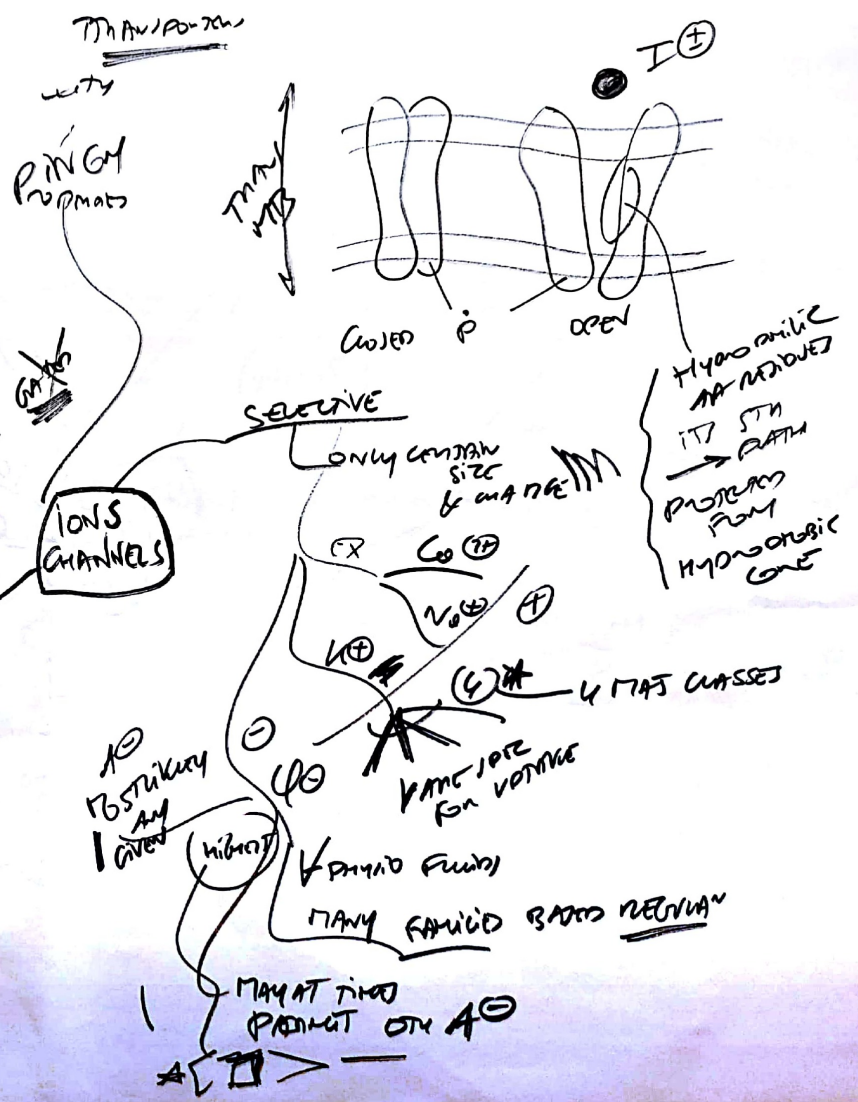 TRANSPORTERS
I ±
TRANS
MB
CLOSED
P
OPEN
HYDROPHILIC
AA RESIDUES
ITS
PATH
PROTECTED
FROM
HYDROPHOBIC
CORE
GATED
SELECTIVE
ONLY CERTAIN
SIZE
& CHARGE
IONS
CHANNELS
EX
Ca 2+
Na +
+
K +
4
4 MAJ CLASSES
-
FOR VOLTAGE
A -
MOST LIKELY
ANY
GIVEN
HIGHEST
PHYSIO FLUIDS
MANY FAMILIES BASED REGULAR
MAY AT TIMES
PERMIT OTH A -